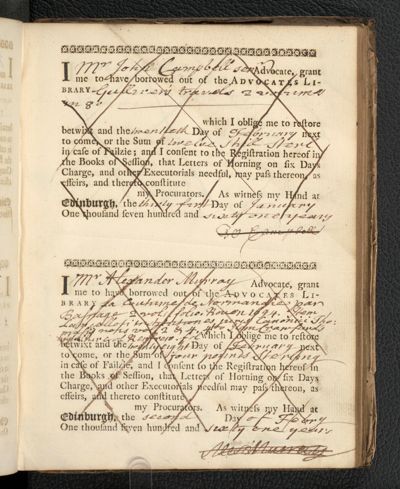 I Mr John Campbell senr Advocate, grant
me to have borrowed out of the ADVOCATES LI-
BRARY Gulliver's travels 2 volumes
in 8º
which I oblige me to restore
betwixt and the twentieth Day of February next
to come, or the Sum of twelve Shill Sterl
in case of Failzie; and I consent to the Registration hereof in
the Books of Session, that Letters of Horning on six Days
Charge, and other Executorials needful, may pass thereon, as
effeirs, and thereto constitute
my Procurators. As witness my Hand at
Edinburgh, the thirty first Day of January
One thousand seven hundred and sixty one years
I Mr Alexander Murray Advocate, grant
me to have borrowed out of the ADVOCATES LI-
BRARY La Coutume de Normandie par
Basnage 2 vol. folio Rouen 1694.
which I oblige me to restore
betwixt and the Day of February next
to come, or the Sum of four pounds Sterling
in case of Failzie, and I consent to the Registration hereof in
the Books of Session, that Letters of Horning on six Days
Charge, and other Executorials needful may pass thereon, as
effeirs, and thereto constitute
my Procurators. As witness my Hand at
Edinburgh, the second Day of Febry
One thousand seven hundred and sixty one years
Alexr Murray